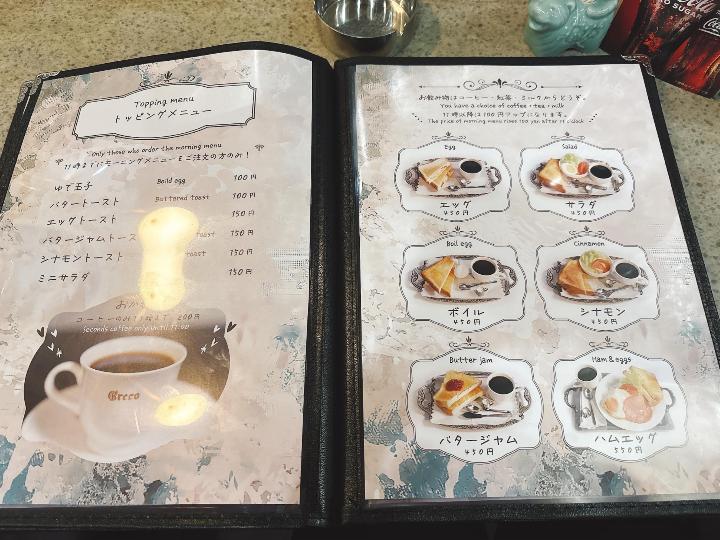 Topping menu
トッピングメニュー
Only those who order the morning menu
11時までにモーニングメニューをご注文の方のみ!
ゆで玉子 Boild egg 100円
バタートースト Buttered toast 100円
エッグトースト 150円
バタージャムトース toast 150円
シナモントースト toast 150円
ミニサラダ 150円
おか
コーヒーのみ 200円
Seconds coffee only until 11:00
Greco
お飲み物はコーヒー・紅茶・ミルクからどうぞ。
You have a choice of coffee・tea・milk
11時以降は100円アップになります。
The price of morning menu rises 100 yen after 11 o'clock
Egg
エッグ
450円
Salad
サラダ
450円
Boil egg
ボイル
450円
Cinnamon
シナモン
450円
Butter jam
バタージャム
450円
Ham & eggs
ハムエッグ
550円
O SUGAR